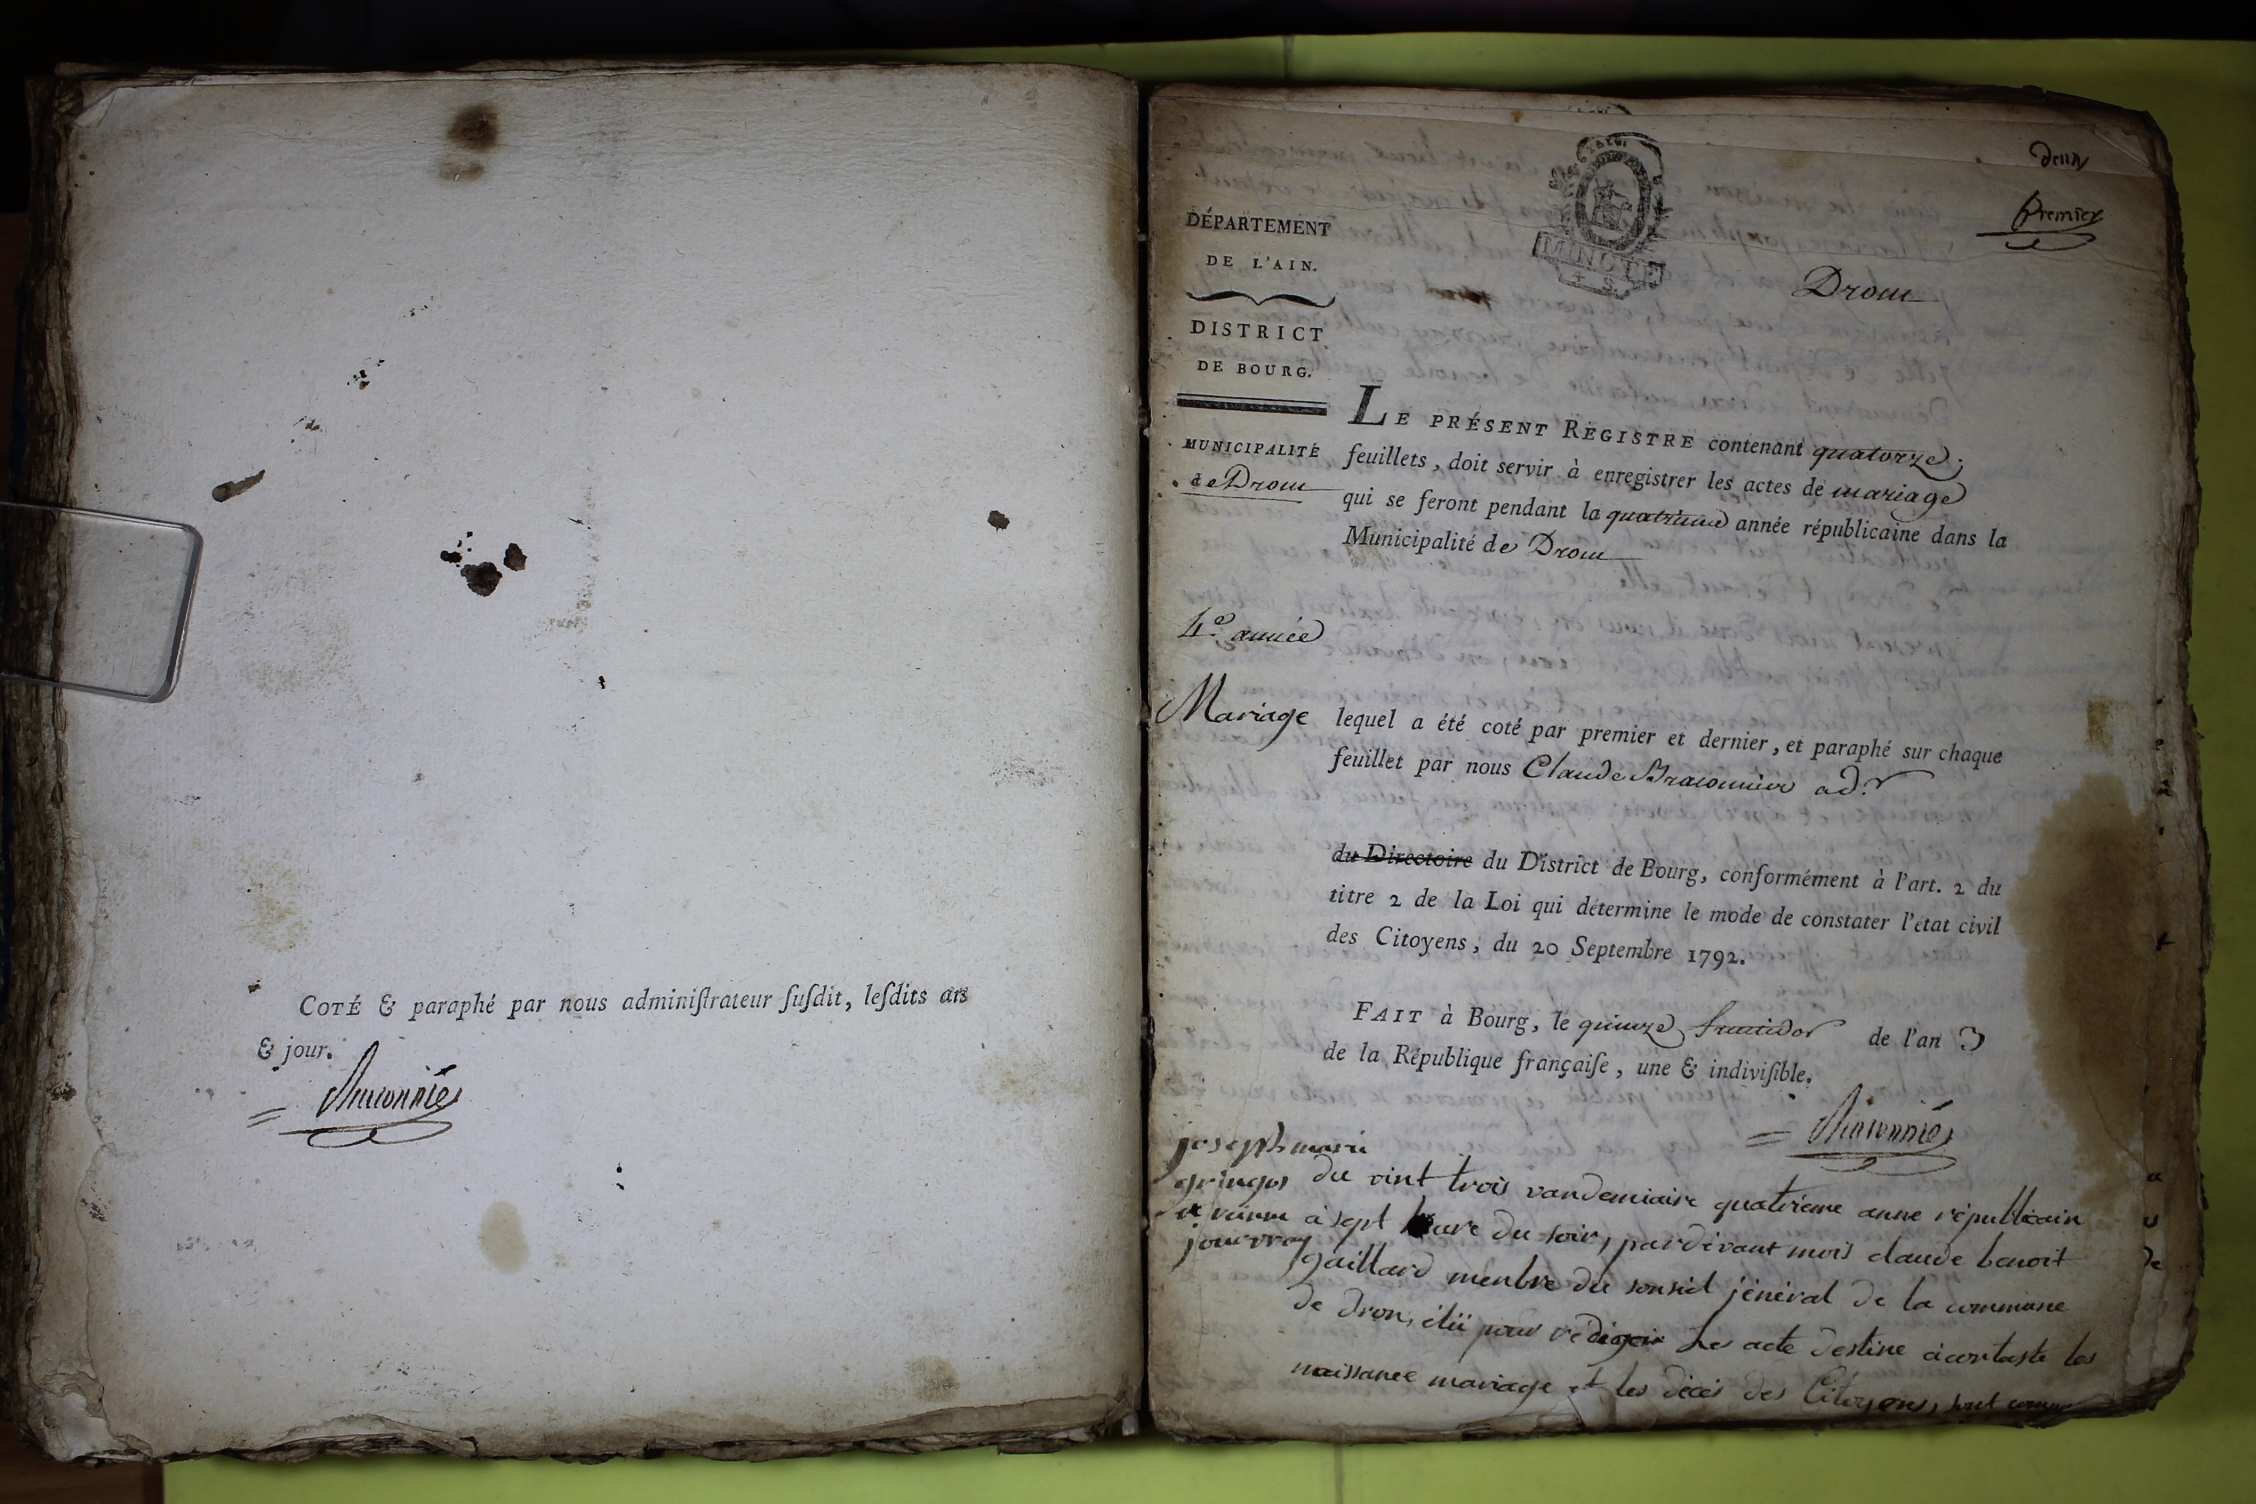 COTÉ & paraphé par nous adminiſtrateur ſuſdit, leſdits an
& jour.
Braconnier
deux
Premier
MINUTE
4 S.
DÉPARTEMENT
DE L'AIN.
DISTRICT
DE BOURG.
MUNICIPALITÉ
de Drom
4e année
Mariage
Drom
LE PRÉSENT REGISTRE contenant quatorze
feuillets, doit servir à enregistrer les actes de mariage
qui se feront pendant la quatrieme année républicaine dans la
Municipalité de Drom
lequel a été coté par premier et dernier, et paraphé sur chaque
feuillet par nous Claude Braconnier ad.r
du Directoire du District de Bourg, conformément à l'art. 2 du
titre 2 de la Loi qui détermine le mode de constater l'état civil
des Citoyens, du 20 Septembre 1792.
FAIT à Bourg, le quinze fructidor de l'an 3
de la République françaiſe, une & indiviſible.
Braconnier
joseph marie
gringos
jouvray
du vint trois vandemiaire quatrieme anne républicain
à sept heure du soir, pardevant mois claude benoit
gaillard menbre du conseil jénéral de la commune
de dron, élü pour rédigeir les acte destine à contaste les
naissance mariage et les décés des Citoyens, sont